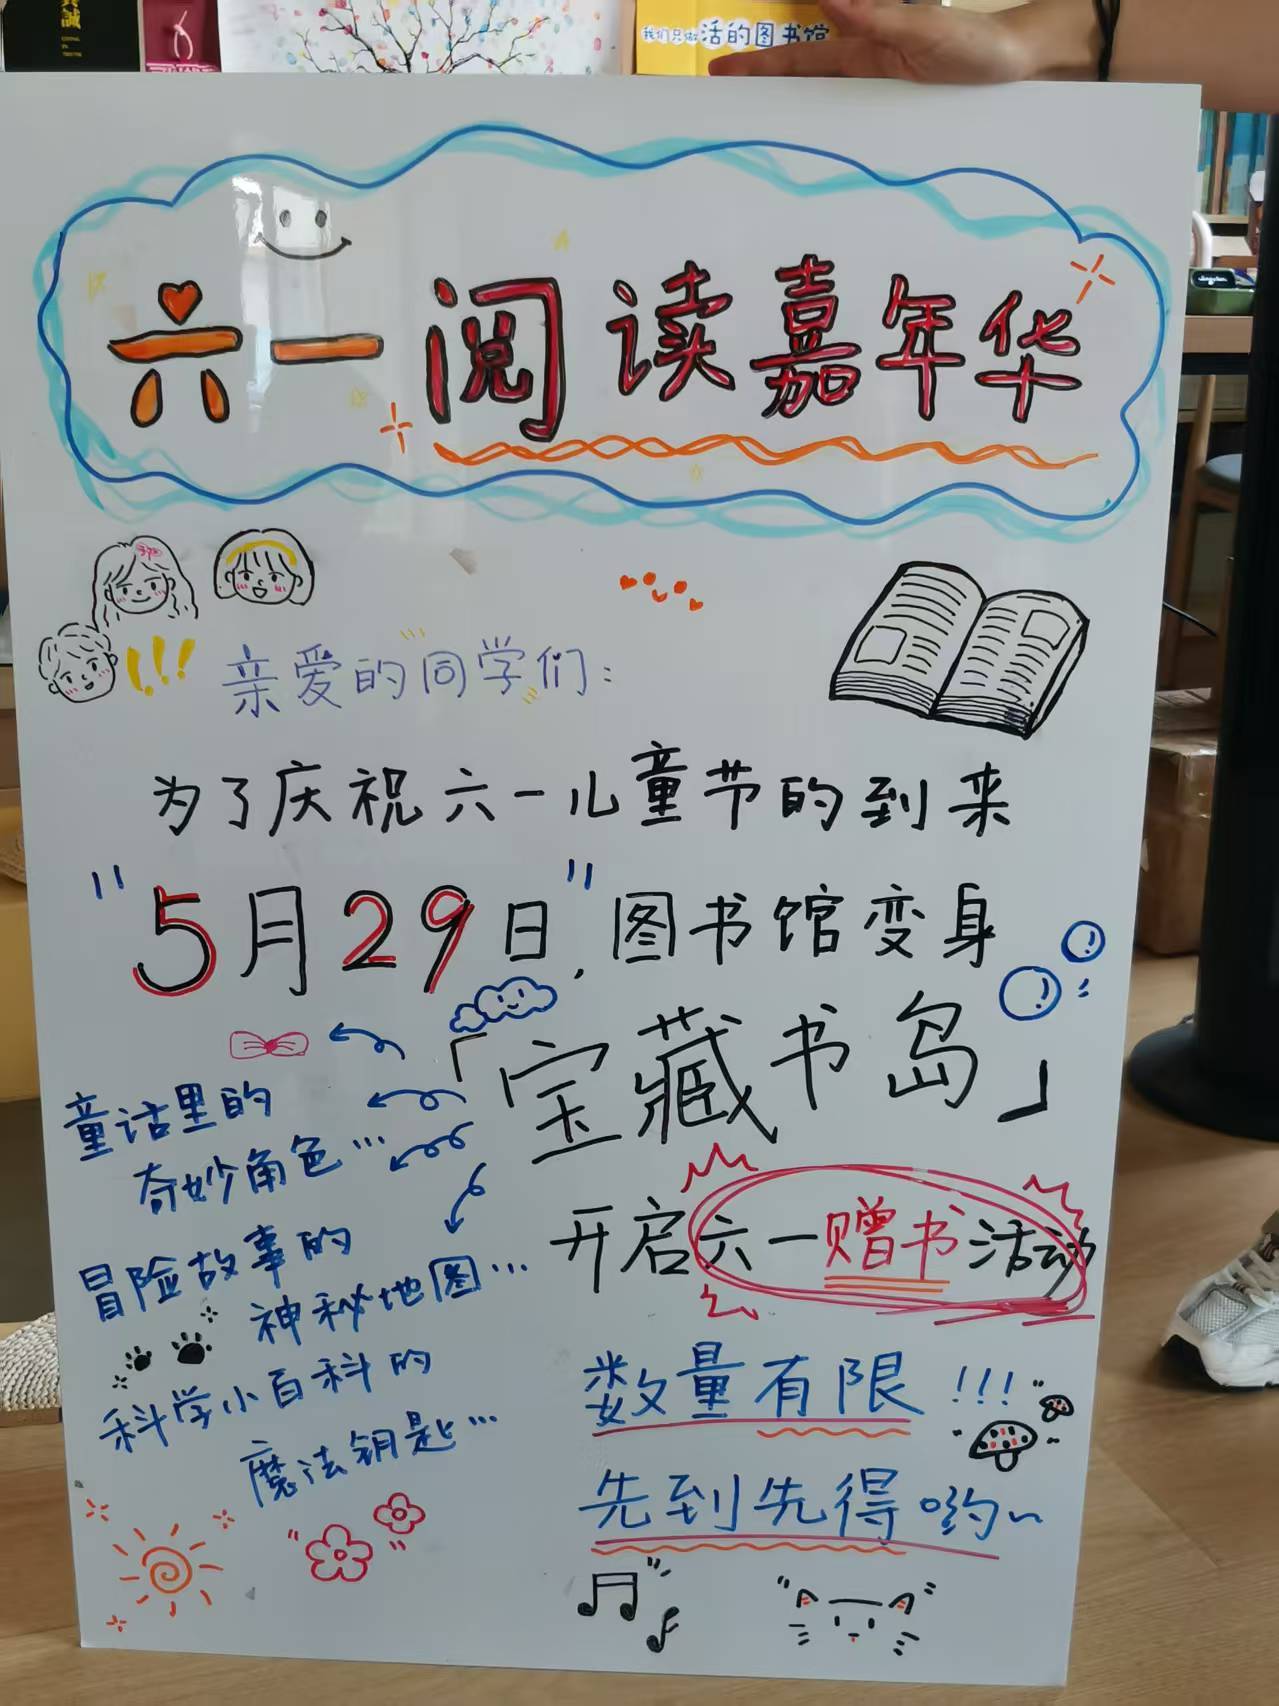 我们只做活的图书馆
六一阅读嘉年华
亲爱的同学们：
为了庆祝六一儿童节的到来
"5月29日"，图书馆变身
「宝藏书岛」
童话里的
奇妙角色…
冒险故事的
神秘地图…
科学小百科的
魔法钥匙…
开启六一赠书活动
数量有限!!!
先到先得哟~